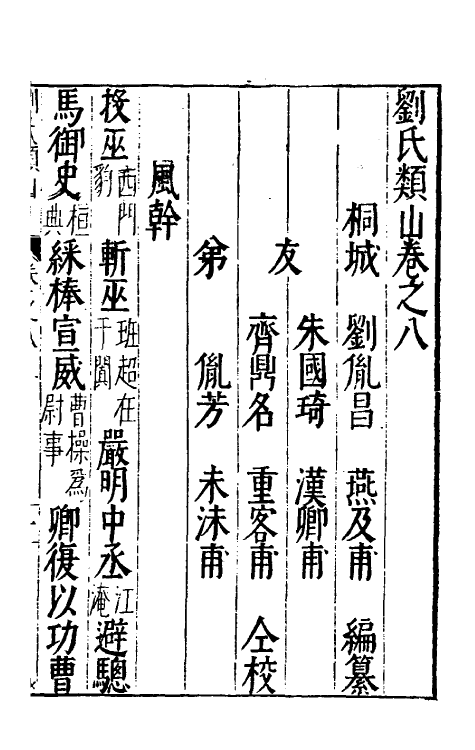 劉氏類山卷之八
桐城 劉胤昌 燕及甫 編纂
朱國琦 漢卿甫
友
齊鼎名 重客甫 仝校
弟 胤芳 未沬甫
風幹
投巫西門豹 斬巫班超在于闐 嚴明中丞江淹 避驄
馬御史桓典 綵棒宣威曹操爲尉事 卿復以功曹